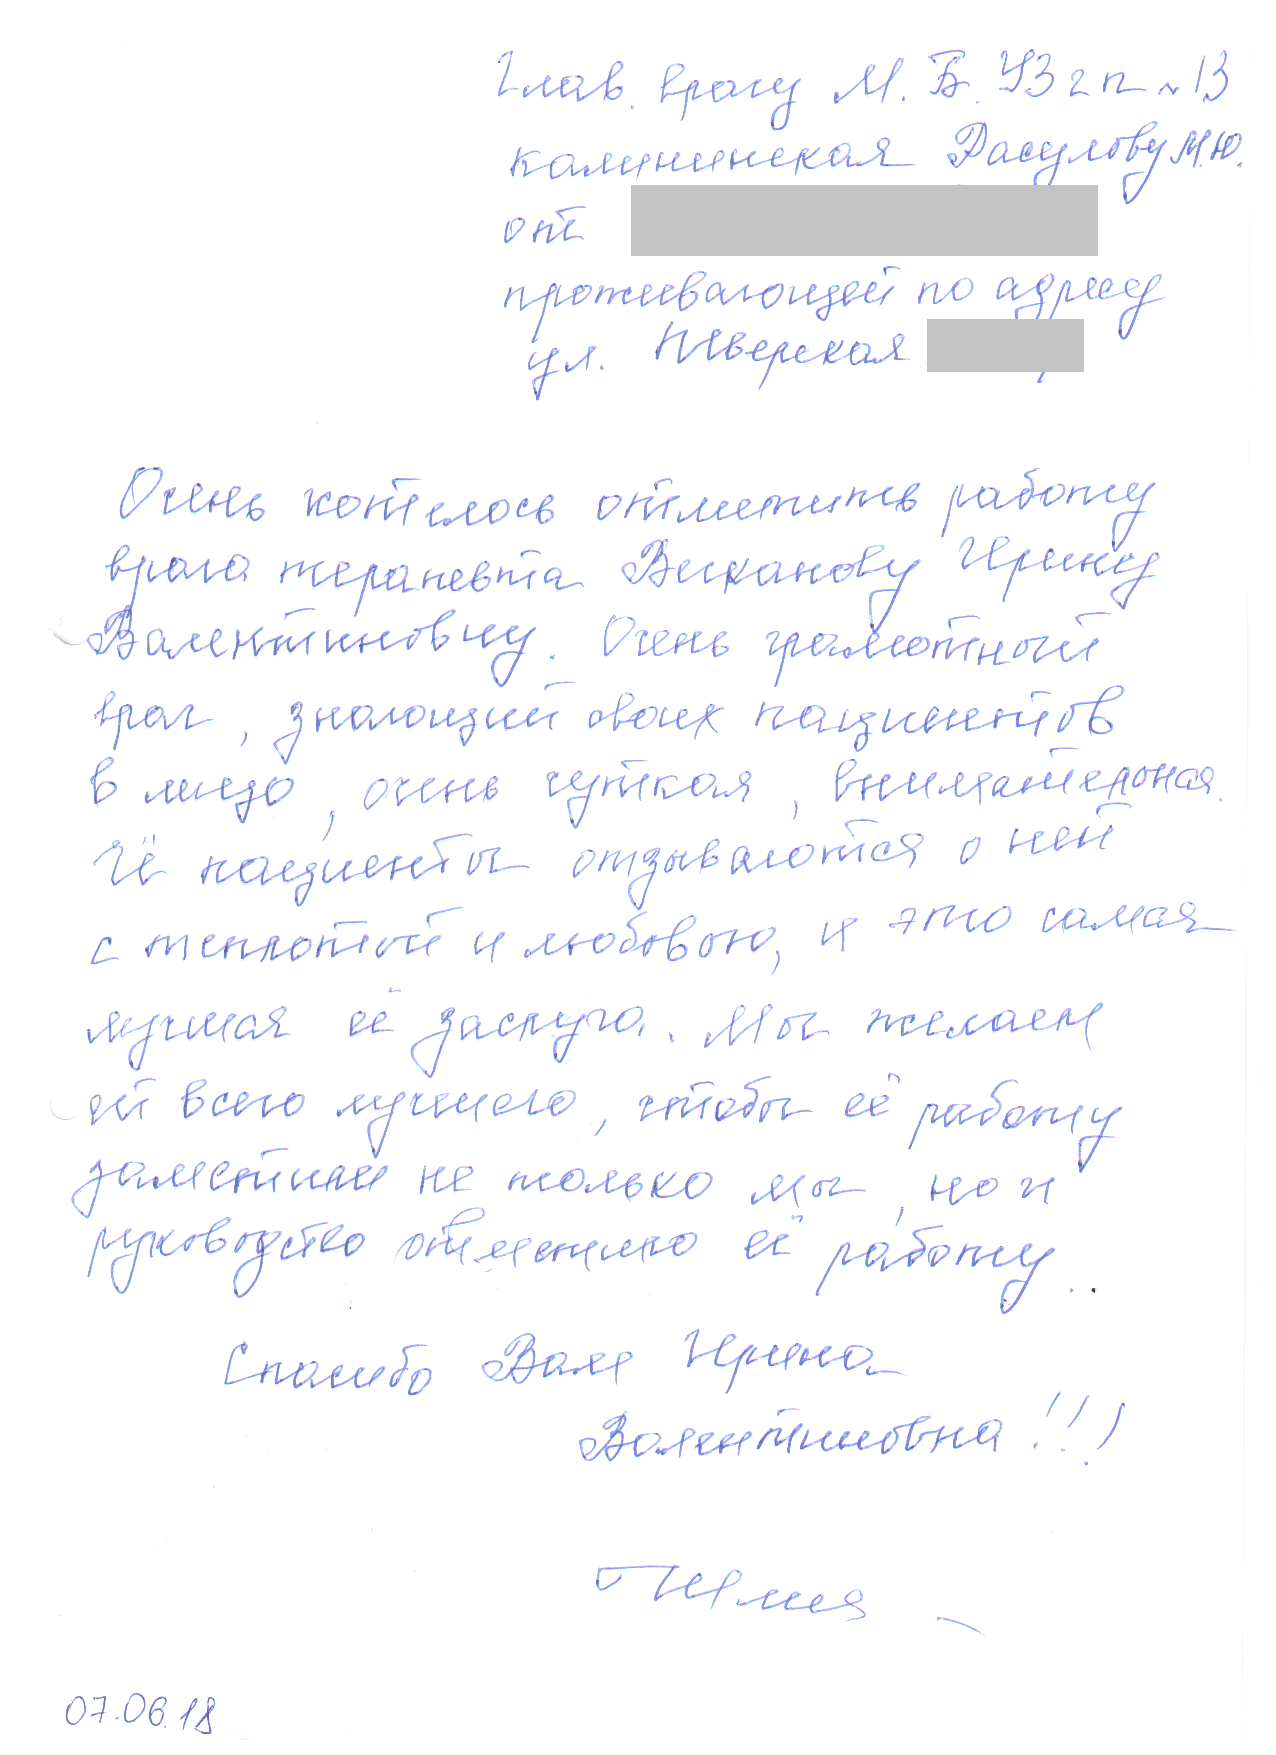 Глав. врачу М. Б. УЗ г п № 13
калининская Расулову М.Ю.
от
проживающей по адресу
ул. Тверская
Очень хотелось отметить работу
врача терапевта Виханову Ирину
Валентиновну. Очень грамотный
врач, знающий своих пациентов
в лицо, очень чуткая, внимательная.
Её пациенты отзываются о ней
с теплотой и любовью, и это самая
лучшая её заслуга. Мы желаем
ей всего лучшего, чтобы её работу
заметили не только мы, но и
руководство отметило её работу..
Спасибо Вам Ирина
Валентиновна!!!
07.06.18